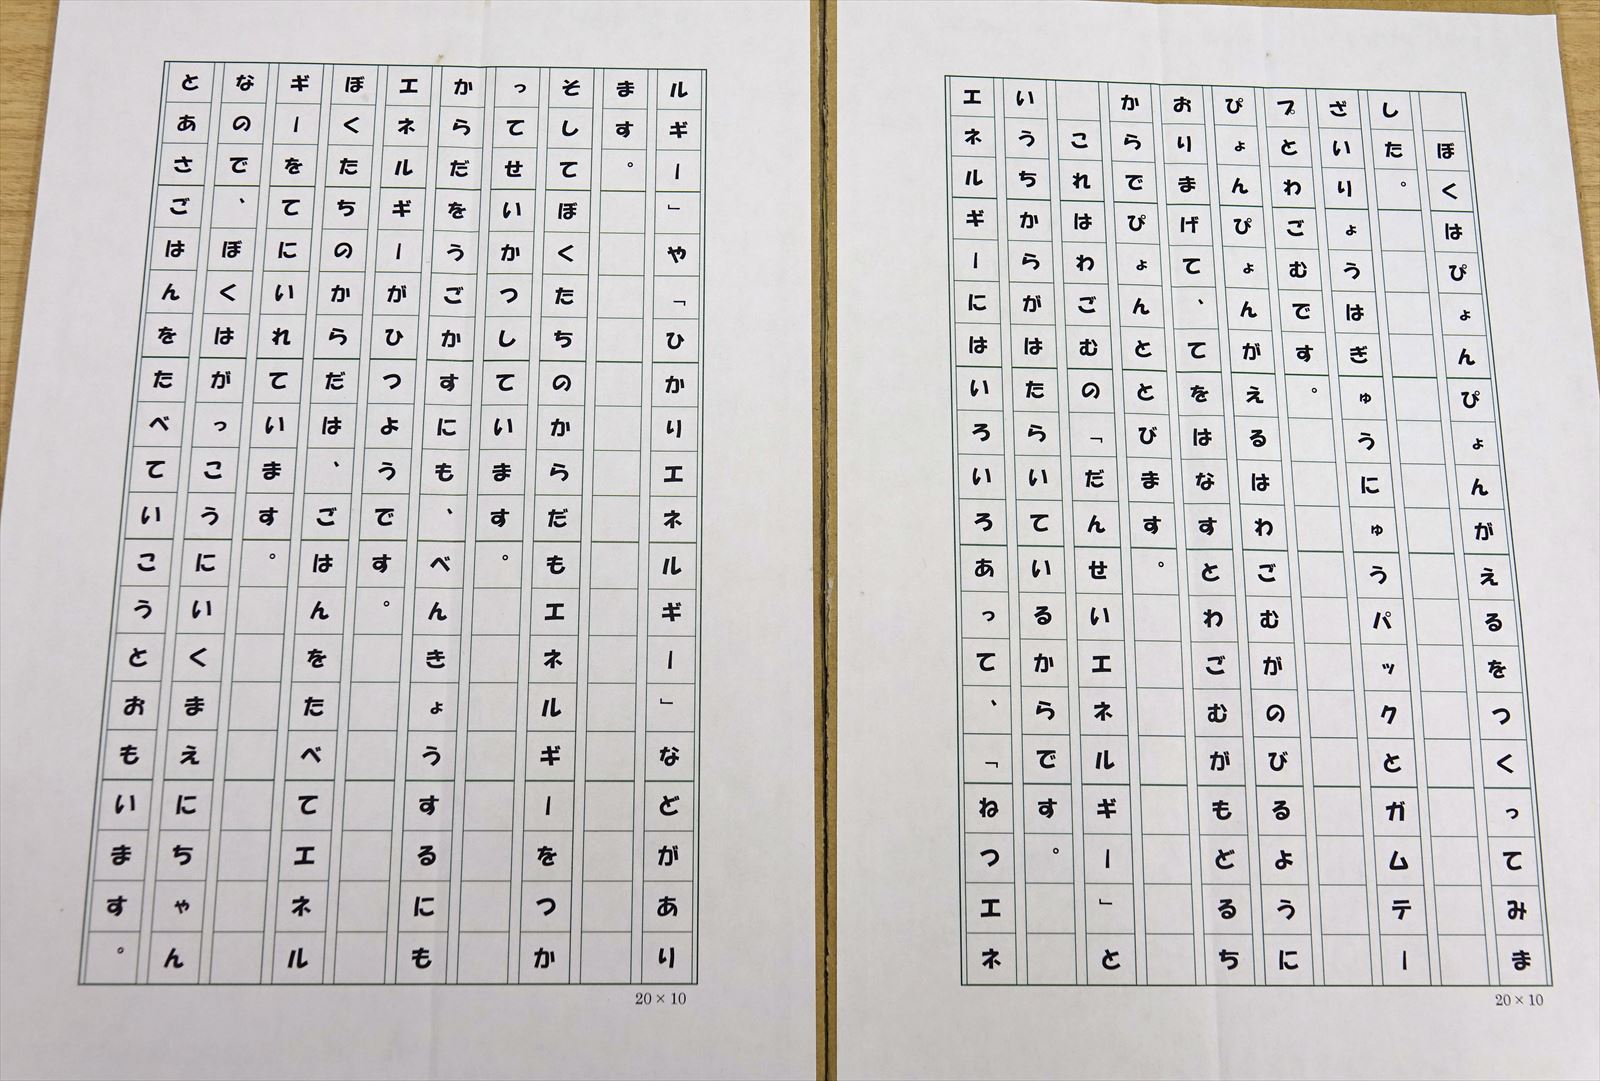 ぼくはぴょんぴょんがえるをつくってみま
した。
ざいりょうはぎゅうにゅうパックとガムテー
プとわごむです。
ぴょんぴょんがえるはわごむがのびるように
おりまげて、てをはなすとわごむがもどるち
からでぴょんととびます。
　これはわごむの「だんせいエネルギー」と
いうちからがはたらいているからです。
エネルギーにはいろいろあって、「ねつエネ
20×10
ルギー」や「ひかりエネルギー」などがあり
ます。
そしてぼくたちのからだもエネルギーをつか
ってせいかつしています。
からだをうごかすにも、べんきょうするにも
エネルギーがひつようです。
ぼくたちのからだは、ごはんをたべてエネル
ギーをてにいれています。
なので、ぼくはがっこうにいくまえにちゃん
とあさごはんをたべていこうとおもいます。
20×10